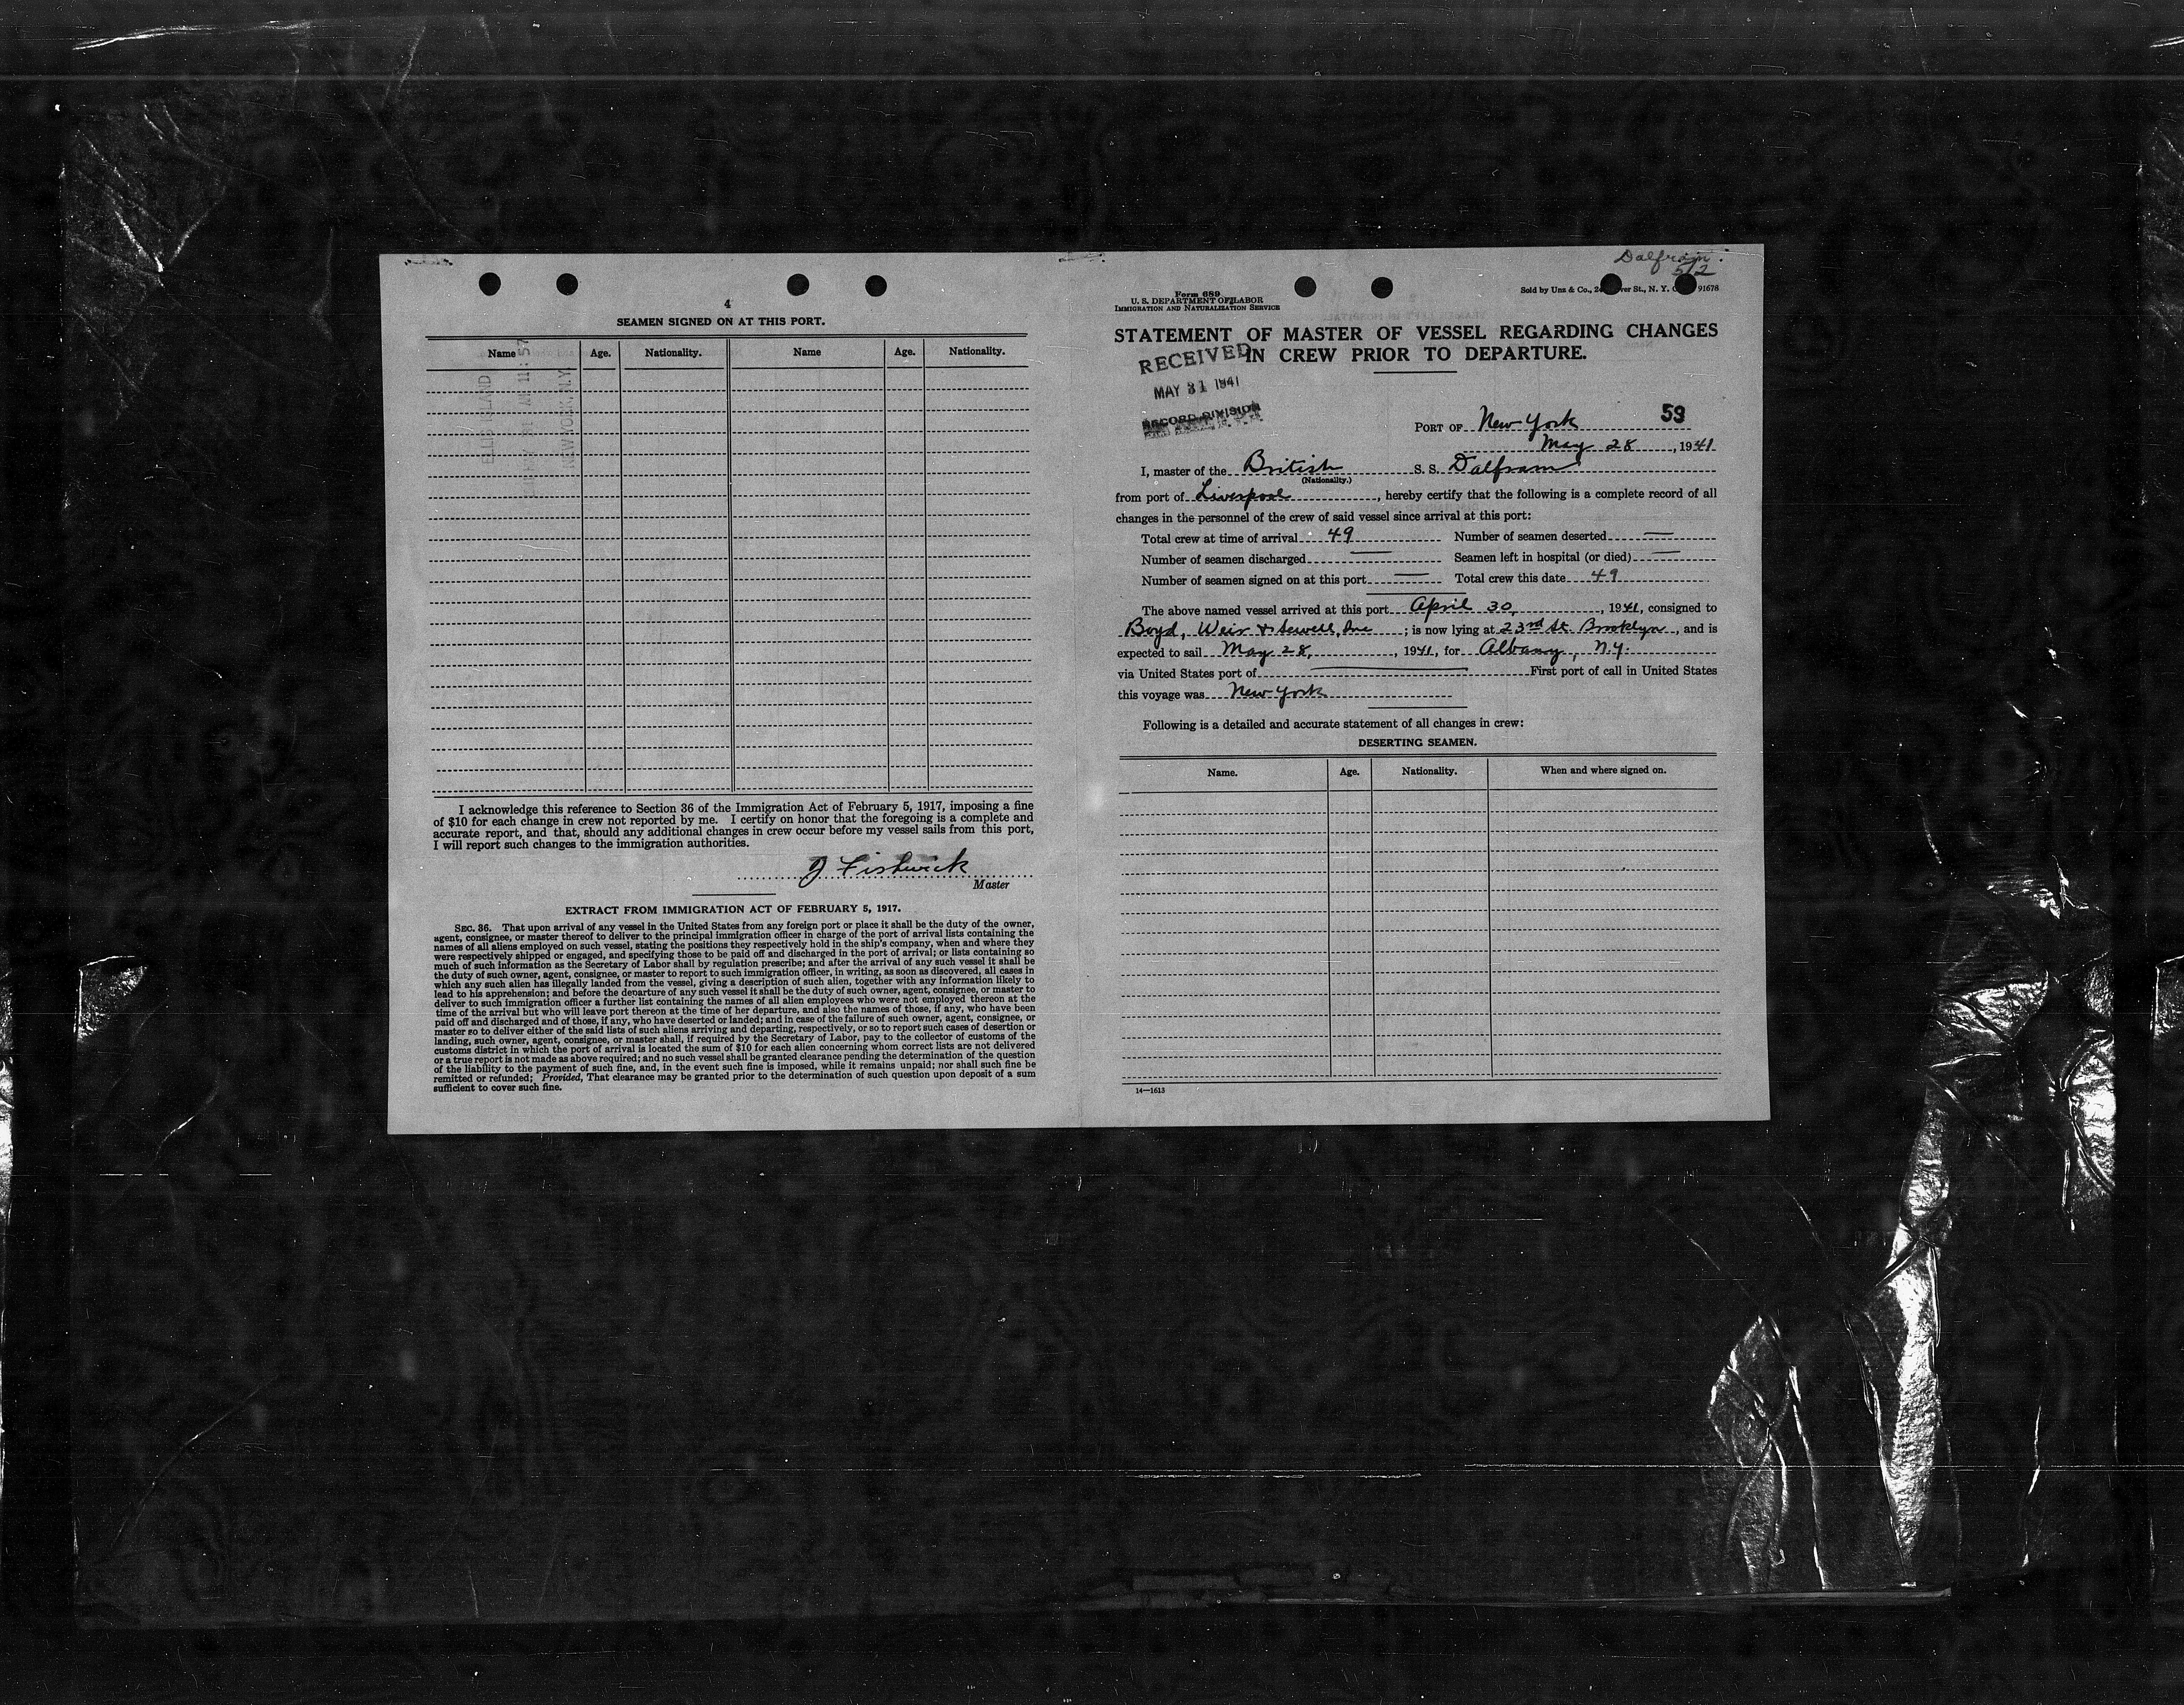 4
SEAMEN SIGNED ON AT THIS PORT.
Name Age. Nationality. Name Age. Nationality.
ELLIS ISLAND
AM 11:57
NEW YORK, N.Y.
I acknowledge this reference to Section 36 of the Immigration Act of February 5, 1917, imposing a fine
of $10 for each change in crew not reported by me. I certify on honor that the foregoing is a complete and
accurate report, and that, should any additional changes in crew occur before my vessel sails from this port,
I will report such changes to the immigration authorities.
J Fishwick
Master
EXTRACT FROM IMMIGRATION ACT OF FEBRUARY 5, 1917.
SEC. 36. That upon arrival of any vessel in the United States from any foreign port or place it shall be the duty of the owner,
agent, consignee, or master thereof to deliver to the principal immigration officer in charge of the port of arrival lists containing the
names of all aliens employed on such vessel, stating the positions they respectively hold in the ship's company, when and where they
were respectively shipped or engaged, and specifying those to be paid off and discharged in the port of arrival; or lists containing so
much of such information as the Secretary of Labor shall by regulation prescribe; and after the arrival of any such vessel it shall be
the duty of such owner, agent, consignee, or master to report to such immigration officer, in writing, as soon as discovered, all cases in
which any such alien has illegally landed from the vessel, giving a description of such alien, together with any information likely to
lead to his apprehension; and before the departure of any such vessel it shall be the duty of such owner, agent, consignee, or master to
deliver to such immigration officer a further list containing the names of all alien employees who were not employed thereon at the
time of the arrival but who will leave port thereon at the time of her departure, and also the names of those, if any, who have been
paid off and discharged and of those, if any, who have deserted or landed; and in case of the failure of such owner, agent, consignee, or
master so to deliver either of the said lists of such aliens arriving and departing, respectively, or so to report such cases of desertion or
landing, such owner, agent, consignee, or master shall, if required by the Secretary of Labor, pay to the collector of customs of the
customs district in which the port of arrival is located the sum of $10 for each alien concerning whom correct lists are not delivered
or a true report is not made as above required; and no such vessel shall be granted clearance pending the determination of the question
of the liability to the payment of such fine, and, in the event such fine is imposed, while it remains unpaid; nor shall such fine be
remitted or refunded; Provided, That clearance may be granted prior to the determination of such question upon deposit of a sum
sufficient to cover such fine.
Dalfram
5/2
Form 689
U. S. DEPARTMENT OF LABOR
IMMIGRATION AND NATURALIZATION SERVICE
Sold by Unz & Co., St., N. Y. 91678
STATEMENT OF MASTER OF VESSEL REGARDING CHANGES
IN CREW PRIOR TO DEPARTURE.
RECEIVED
MAY 31 1941
RECORD DIVISION
59
PORT OF New York
May 28, 1941
I, master of the British S. S. Dalfram
(Nationality.)
from port of Liverpool, hereby certify that the following is a complete record of all
changes in the personnel of the crew of said vessel since arrival at this port:
Total crew at time of arrival 49 Number of seamen deserted —
Number of seamen discharged — Seamen left in hospital (or died) —
Number of seamen signed on at this port — Total crew this date 49
The above named vessel arrived at this port April 30, 1941, consigned to
Boyd, Weir & Sewell, Inc; is now lying at 23rd St Brooklyn, and is
expected to sail May 28, 1941, for Albany, N.Y.
via United States port of — First port of call in United States
this voyage was New York
Following is a detailed and accurate statement of all changes in crew:
DESERTING SEAMEN.
Name. Age. Nationality. When and where signed on.
14—1613